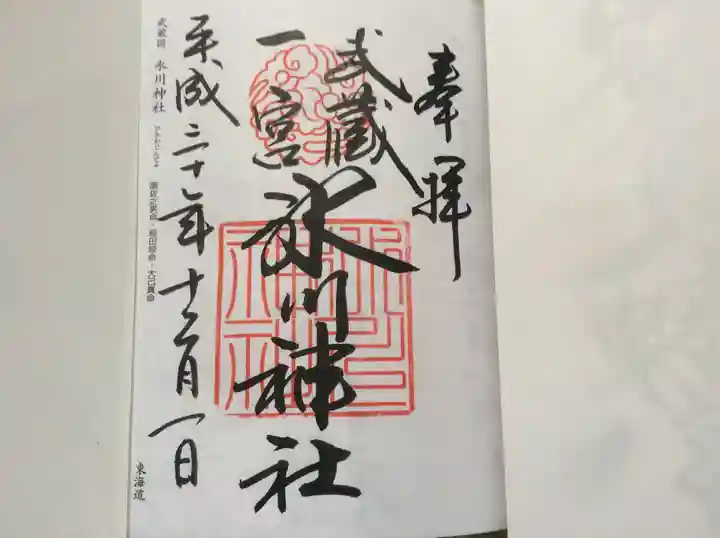 奉拝
武蔵
一宮
氷川神社
氷川神社
平成三十年十二月一日
武蔵国 氷川神社 ひかわじんじゃ 須佐之男命・稲田姫命・大己貴命
東海道